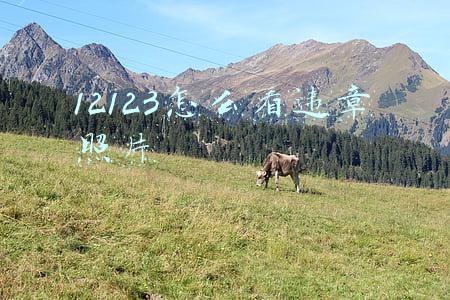 12123怎么看违章
照片